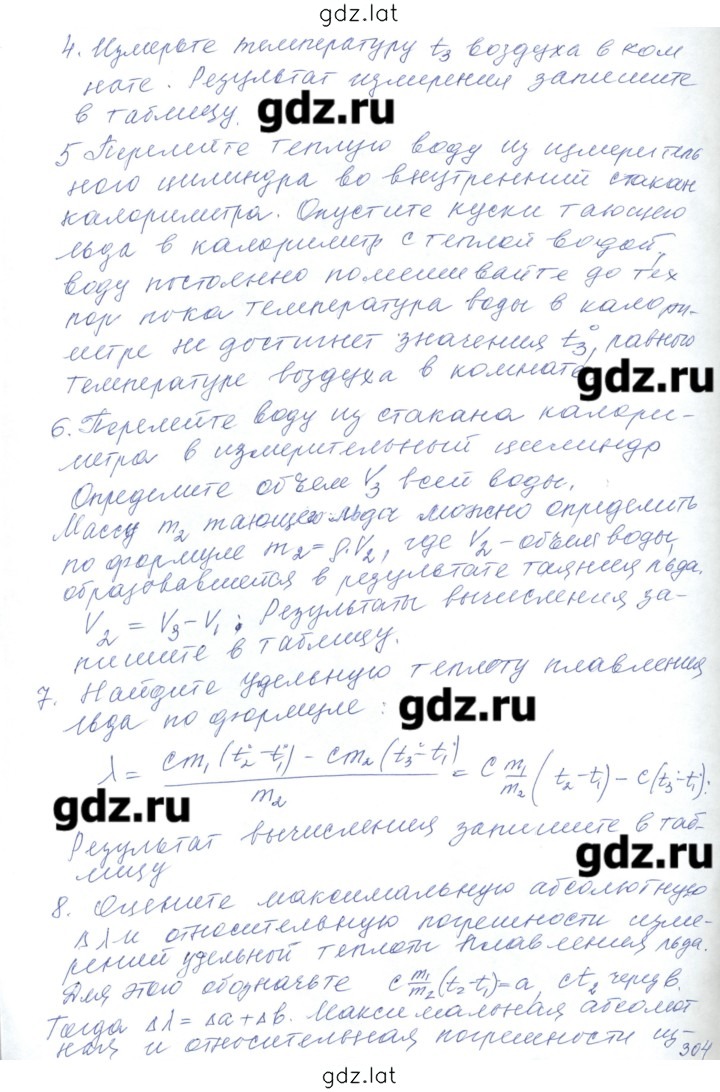 gdz.lat
4. Измерьте температуру t₃ воздуха в ком
нате. Результат измерения запишите
в таблицу.
gdz.ru
5 Перелейте теплую воду из измеритель
ного цилиндра во внутренний стакан
калориметра. Опустите куски тающего
льда в калориметр с теплой водой,
воду постоянно помешивайте до тех
пор пока температура воды в калори-
метре не достигнет значения t₃°, равного
температуре воздуха в комнате
gdz.ru
6. Перелейте воду из стакана калори-
метра в измерительный цилиндр
Определите объем V₃ всей воды.
Массу m₂ тающего льда можно определить
по формуле m₂ = ρ·V₂, где V₂ - объем воды,
образовавшейся в результате таяния льда.
V₂ = V₃ - V₁; Результаты вычисления за-
пишите в таблицу.
7. Найдите удельную теплоту плавления
льда по формуле:
gdz.ru
λ = (cm₁(t₂°-t₁°) - cm₂(t₃°-t₁°))/m₂ = c m₁/m₂ (t₂-t₁) - c(t₃°-t₁°):
gdz.ru
Результат вычисления запишите в таб-
лицу
gdz.ru
8. Оцените максимальную абсолютную
Δλ и относительную погрешности изме-
рений удельный теплоты плавления льда.
Для этого обозначьте c m₁/m₂ (t₂-t₁)=a, ct₂ через в.
Тогда Δλ = Δa + Δв. Максимальная абсолют
ная и относительная погрешности из-
304
gdz.lat